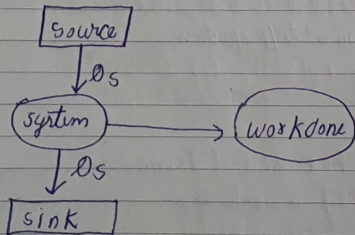 source
Qs
system
workdone
Qs
sink